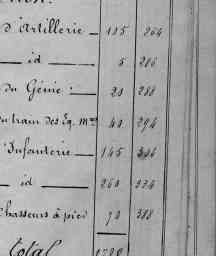 d'Artillerie — 115 264
— id — 6 286
du Génie : — 20 288
du train des Eq. M.res 40 294
Infanterie — 145 306
— id — 260 334
Chasseurs à pied 70 388
Total